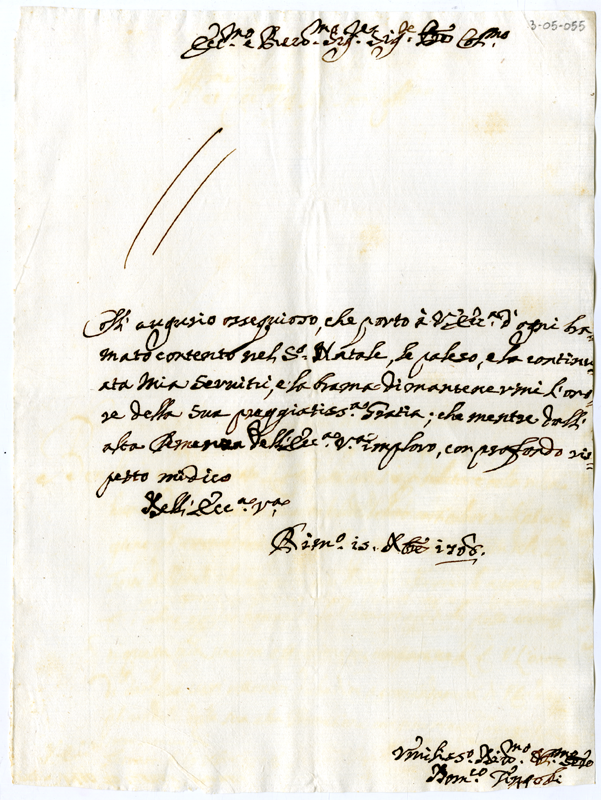 3-05-055
Ecc.mo e Rever.mo Sig.r Sig.r
Coll'augurio ossequioso, che porto à V. Ecc.a d'ogni bra-
mato contento nel S.o Natale, le paleso, e la continu-
ata mia Servitù, e la brama di mantenermi l'ono-
re della Sua preggiatiss.a Gratia; che mentre dall'
alta Clemenza dell'Ecc.a V.a imploro, con profondo ris-
petto mi dico
Dell'Ecc.a V.a
Rim.o 15. Xbre 1706.
Umiliss.o Div.mo Obl.mo Ser.e
Dom.co